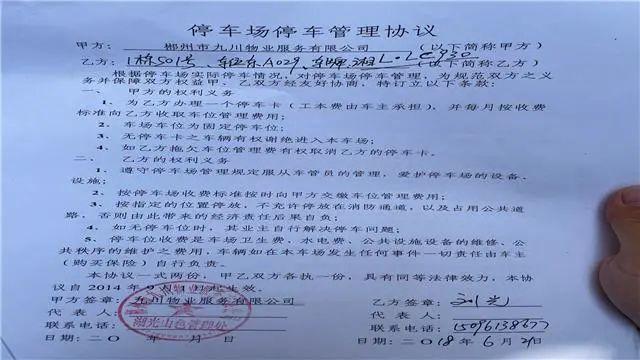 停车场停车管理协议
甲方：郴州市九川物业服务有限公司（以下简称甲方）
乙方：1栋501号、车位A029、车牌湘L·LC930（以下简称乙方）
根据停车场实际停车情况，对停车场停车管理，为规范双方之义
务并保障双方权益甲、乙双方经友好协商，特订立以下条款：
一、甲方的权利义务
1、为乙方办理一个停车卡（工本费由车主承担），并每月按收费
标准向乙方收取车位管理费用；
2、车场车位为固定停车位；
3、无停车卡之车辆有权谢绝进入本车场；
4、如乙方拖欠车位管理费有权取消乙方的停车卡。
二、乙方的权利义务
1、遵守停车场管理规定服从车管员的管理，爱护停车场的设备、
设施；
2、按停车场收费标准按时向甲方交缴车位管理费用；
3、按指定的位置停放，不允许停放在消防通道，以及占用公共道
路，否则由此带来的经济责任后果自负；
4、如无停车位时，其业主自行解决停车问题；
5、停车位收费是车场卫生费、水电费、公共设施设备的维修、公
共秩序的维护之费用，车辆如在本车场发生任何事件一切责任由车主
（购买保险）自行负责。
本协议一式两份，甲乙双方各执一份，具有同等法律效力，本协
议自2014年9月1日起生效。
甲方签章：九川物业服务有限公司 乙方签章：刘
代 表 人： 代 表 人：
湖光山色管理处
联系电话： 联系电话：15096138677
日期：二○ 年 月 日 日期：二○18年6月21日